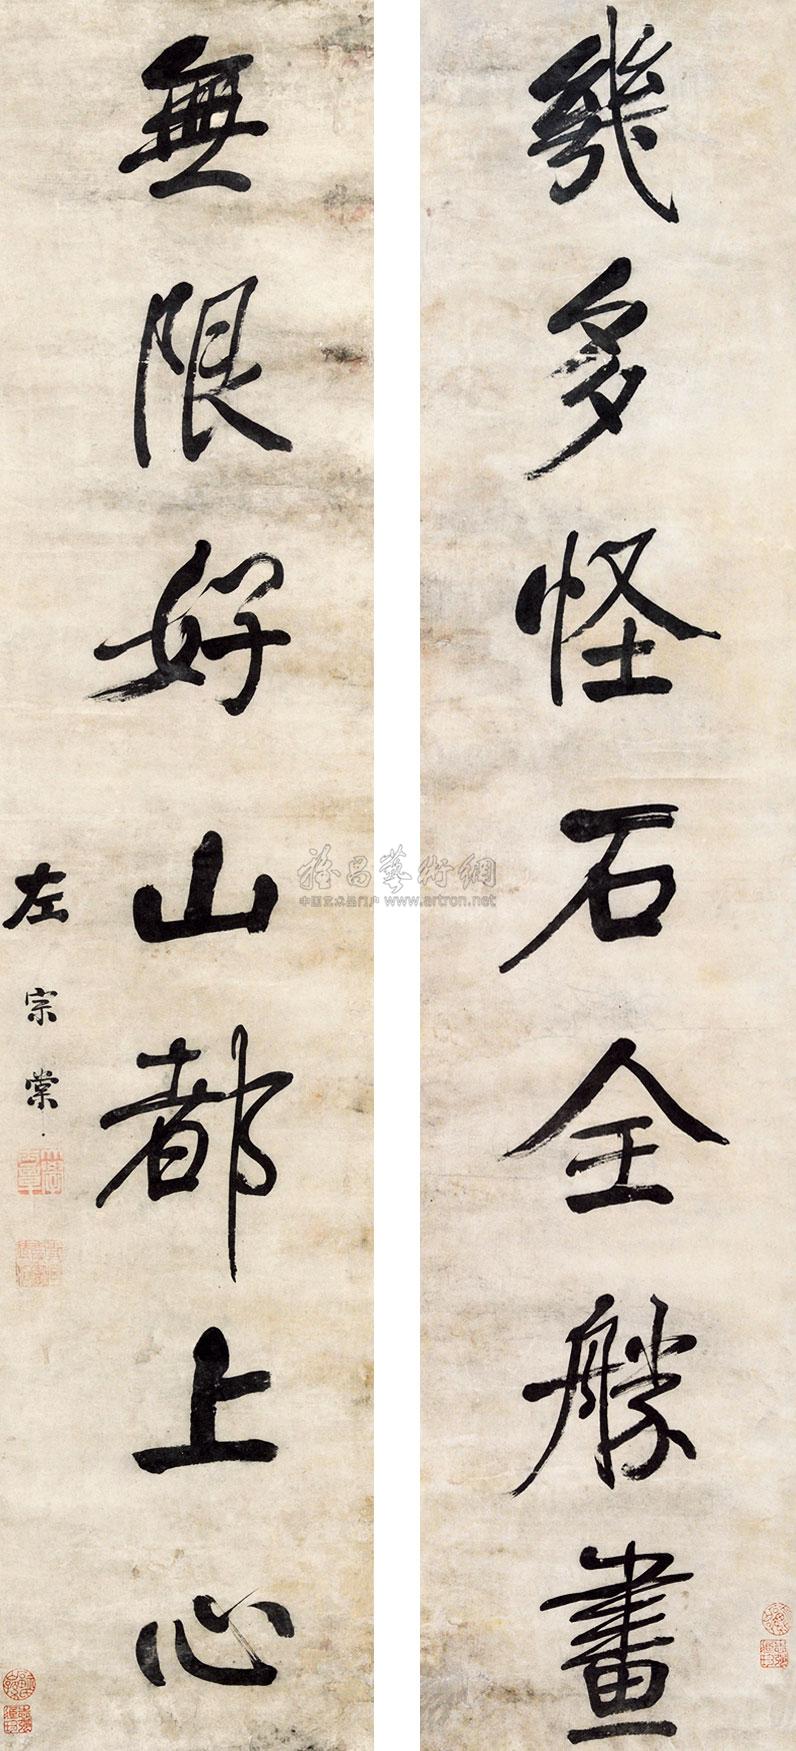 幾多怪石全勝畫
無限好山都上心
左宗棠
雅昌藝術網
中国艺术品门户 www.artron.net